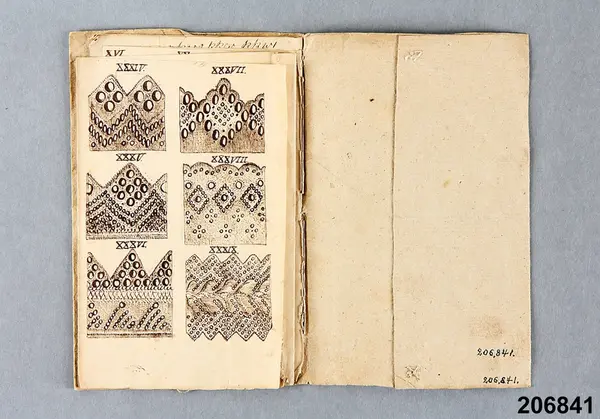 XVI
XXXIV. XXXVII.
XXXV. XXXVIII.
XXXVI. XXXIX
206,841.
206,841.
206841